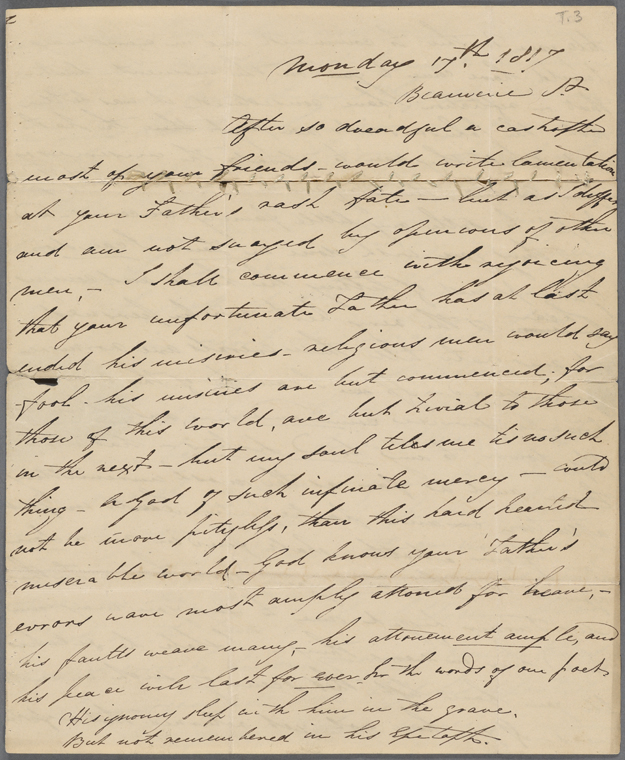 T.3
Monday 17th 1817
Beaumeris St
After so dreadful a castrofhe
most of your friends - would write lamentation
at your Father's rash fate - but as I differ
and am not swayed by openions of other
men, - I shall commence with rejoicing
that your unfortunate Father has at last
ended his miseries - religious men would say
fool - his misiries are but commenced, for
those of this world, are but trivial to those
in the next - but my soul tels me tis no such
thing - a God of such infinate mercy - could
not be more pityless, than this hard hearted
miserable world - God knows your Father's
errors weare most amply attoned for heare, -
his faults weare many - his attonement ample, and
his peace will last for ever, for the words of our poet
His ignomy sleep with him in the grave.
But not remembered in his Epetaph.